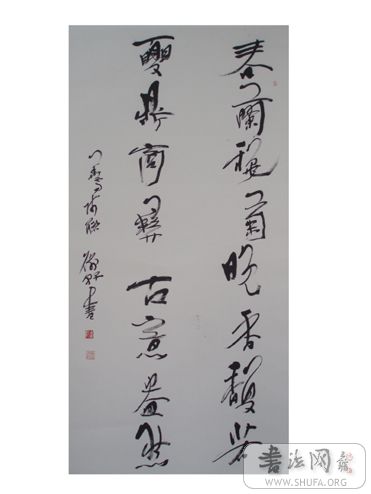 春蘭秋菊晚香馥若
夏鼎商彝古意盎然
書法网
WWW.SHUFA.ORG